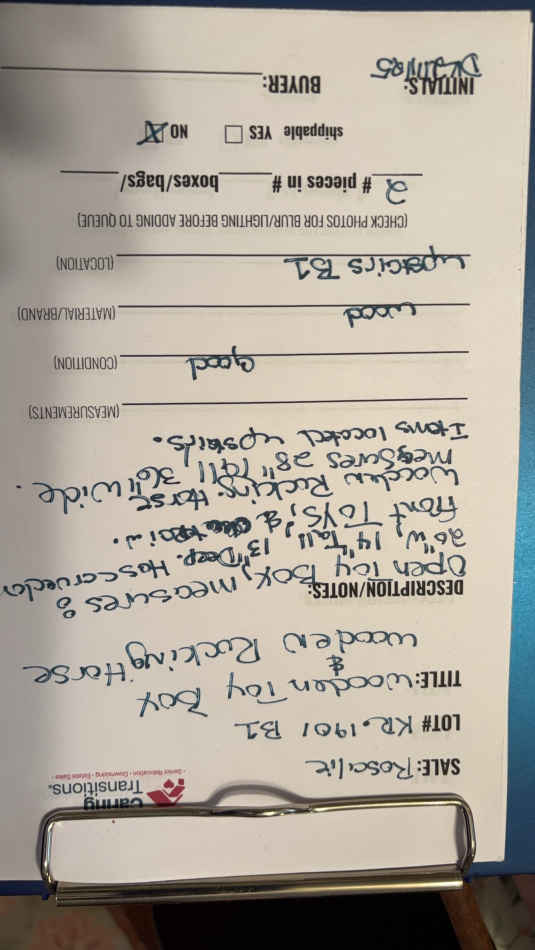 Caring
Transitions.
Senior Relocation • Downsizing • Estate Sales
SALE: Rosalie
LOT# KR.1901 B1
TITLE: Wooden Toy Box
&
Wooden Rocking Horse
DESCRIPTION/NOTES:
Open Toy Box, measures :
20"W, 14" Tall, 13" Deep. Has carved on
front TOYS, &
Wooden Rocking Horse
measures 28" Tall, 36" Wide.
Items located upstairs.
(MEASUREMENTS)
good (CONDITION)
wood (MATERIAL/BRAND)
Upstairs B1 (LOCATION)
(CHECK PHOTOS FOR BLUR/LIGHTING BEFORE ADDING TO QUEUE)
2 # pieces in # boxes/bags/
shippable YES NO X
INITIALS: BUYER: